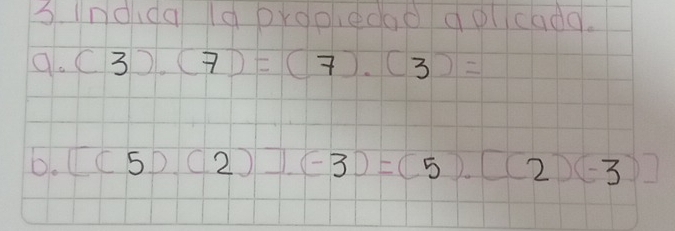 3 Indica la propiedad aplicada.
a. (3).(7)=(7).(3)=
b. [(5).(2)].(-3)=(5).[(2)(-3)]